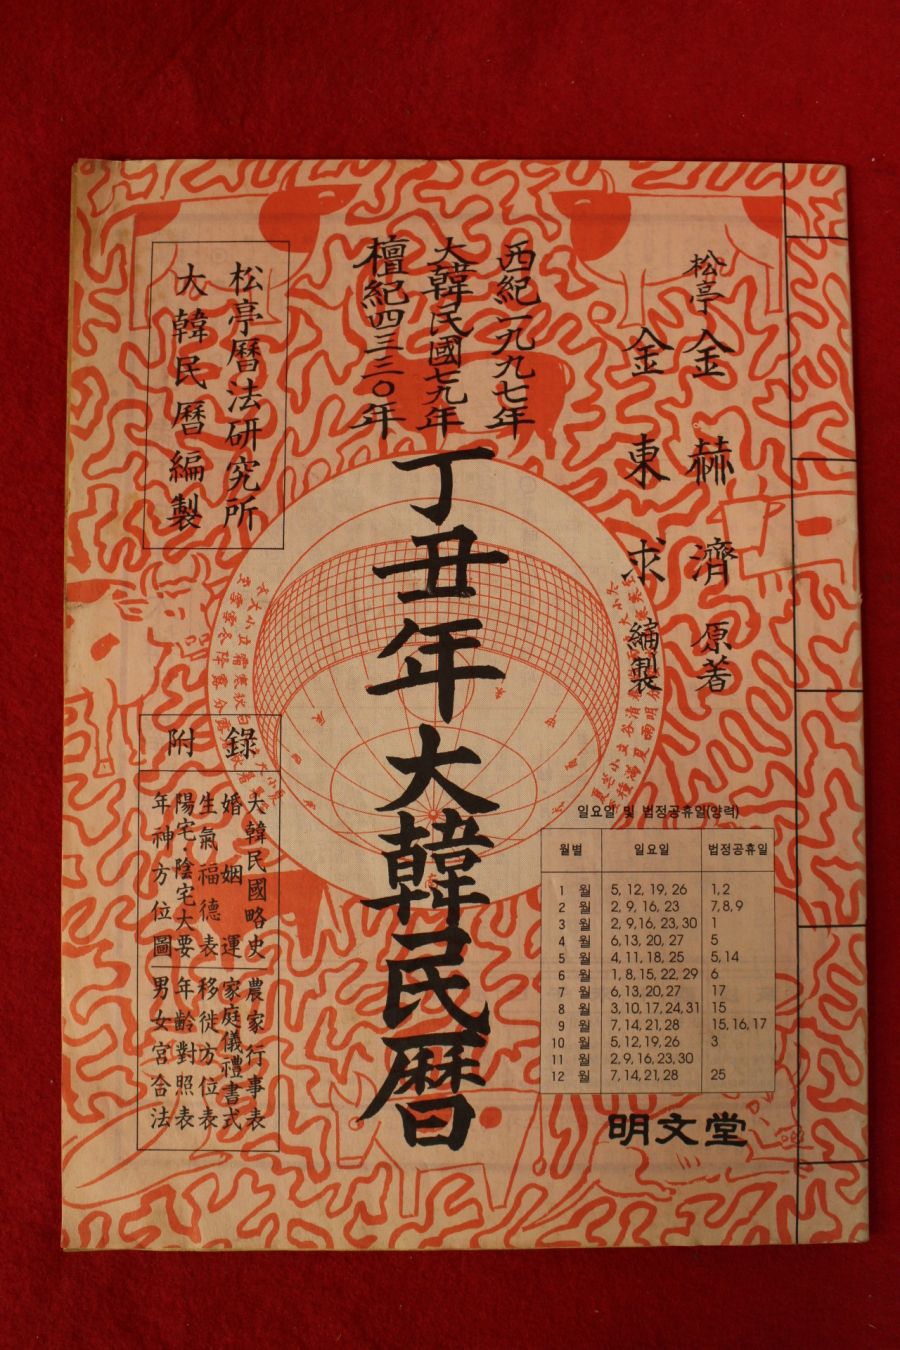 松亭 金赫濟 原著
金東求 編製
西紀一九九七年
大韓民國七九年
檀紀四三三〇年
丁丑年大韓民曆
松亭曆法研究所
大韓民曆編製
附錄
大韓民國略史
婚姻運
生氣福德表
陽宅·陰宅大要
年神方位圖
農家行事表
家庭儀禮書式
移徙方位表
年齡對照表
男女宮合法
일요일 및 법정공휴일(양력)
월별 일요일 법정공휴일
1 월 5, 12, 19, 26 1, 2
2 월 2, 9, 16, 23 7, 8, 9
3 월 2, 9, 16, 23, 30 1
4 월 6, 13, 20, 27 5
5 월 4, 11, 18, 25 5, 14
6 월 1, 8, 15, 22, 29 6
7 월 6, 13, 20, 27 17
8 월 3, 10, 17, 24, 31 15
9 월 7, 14, 21, 28 15, 16, 17
10 월 5, 12, 19, 26 3
11 월 2, 9, 16, 23, 30
12 월 7, 14, 21, 28 25
明文堂